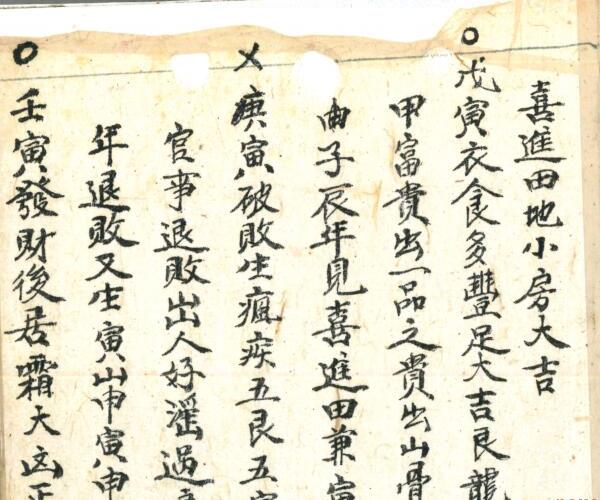 喜進田地小房大吉
戊寅衣食多豐足大吉艮龍
甲富貴出一品之貴出山骨
由子辰年見喜進田兼寅
庚寅破敗生瘋疾五艮五寅
官事退敗出人好滛過
年退敗又生寅山申寅申
壬寅發財後居霜大凶正